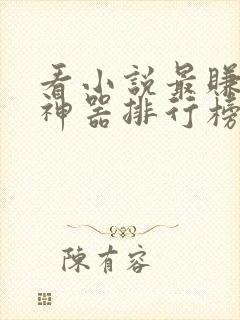 看小說最賺
神器排行榜
陳有容